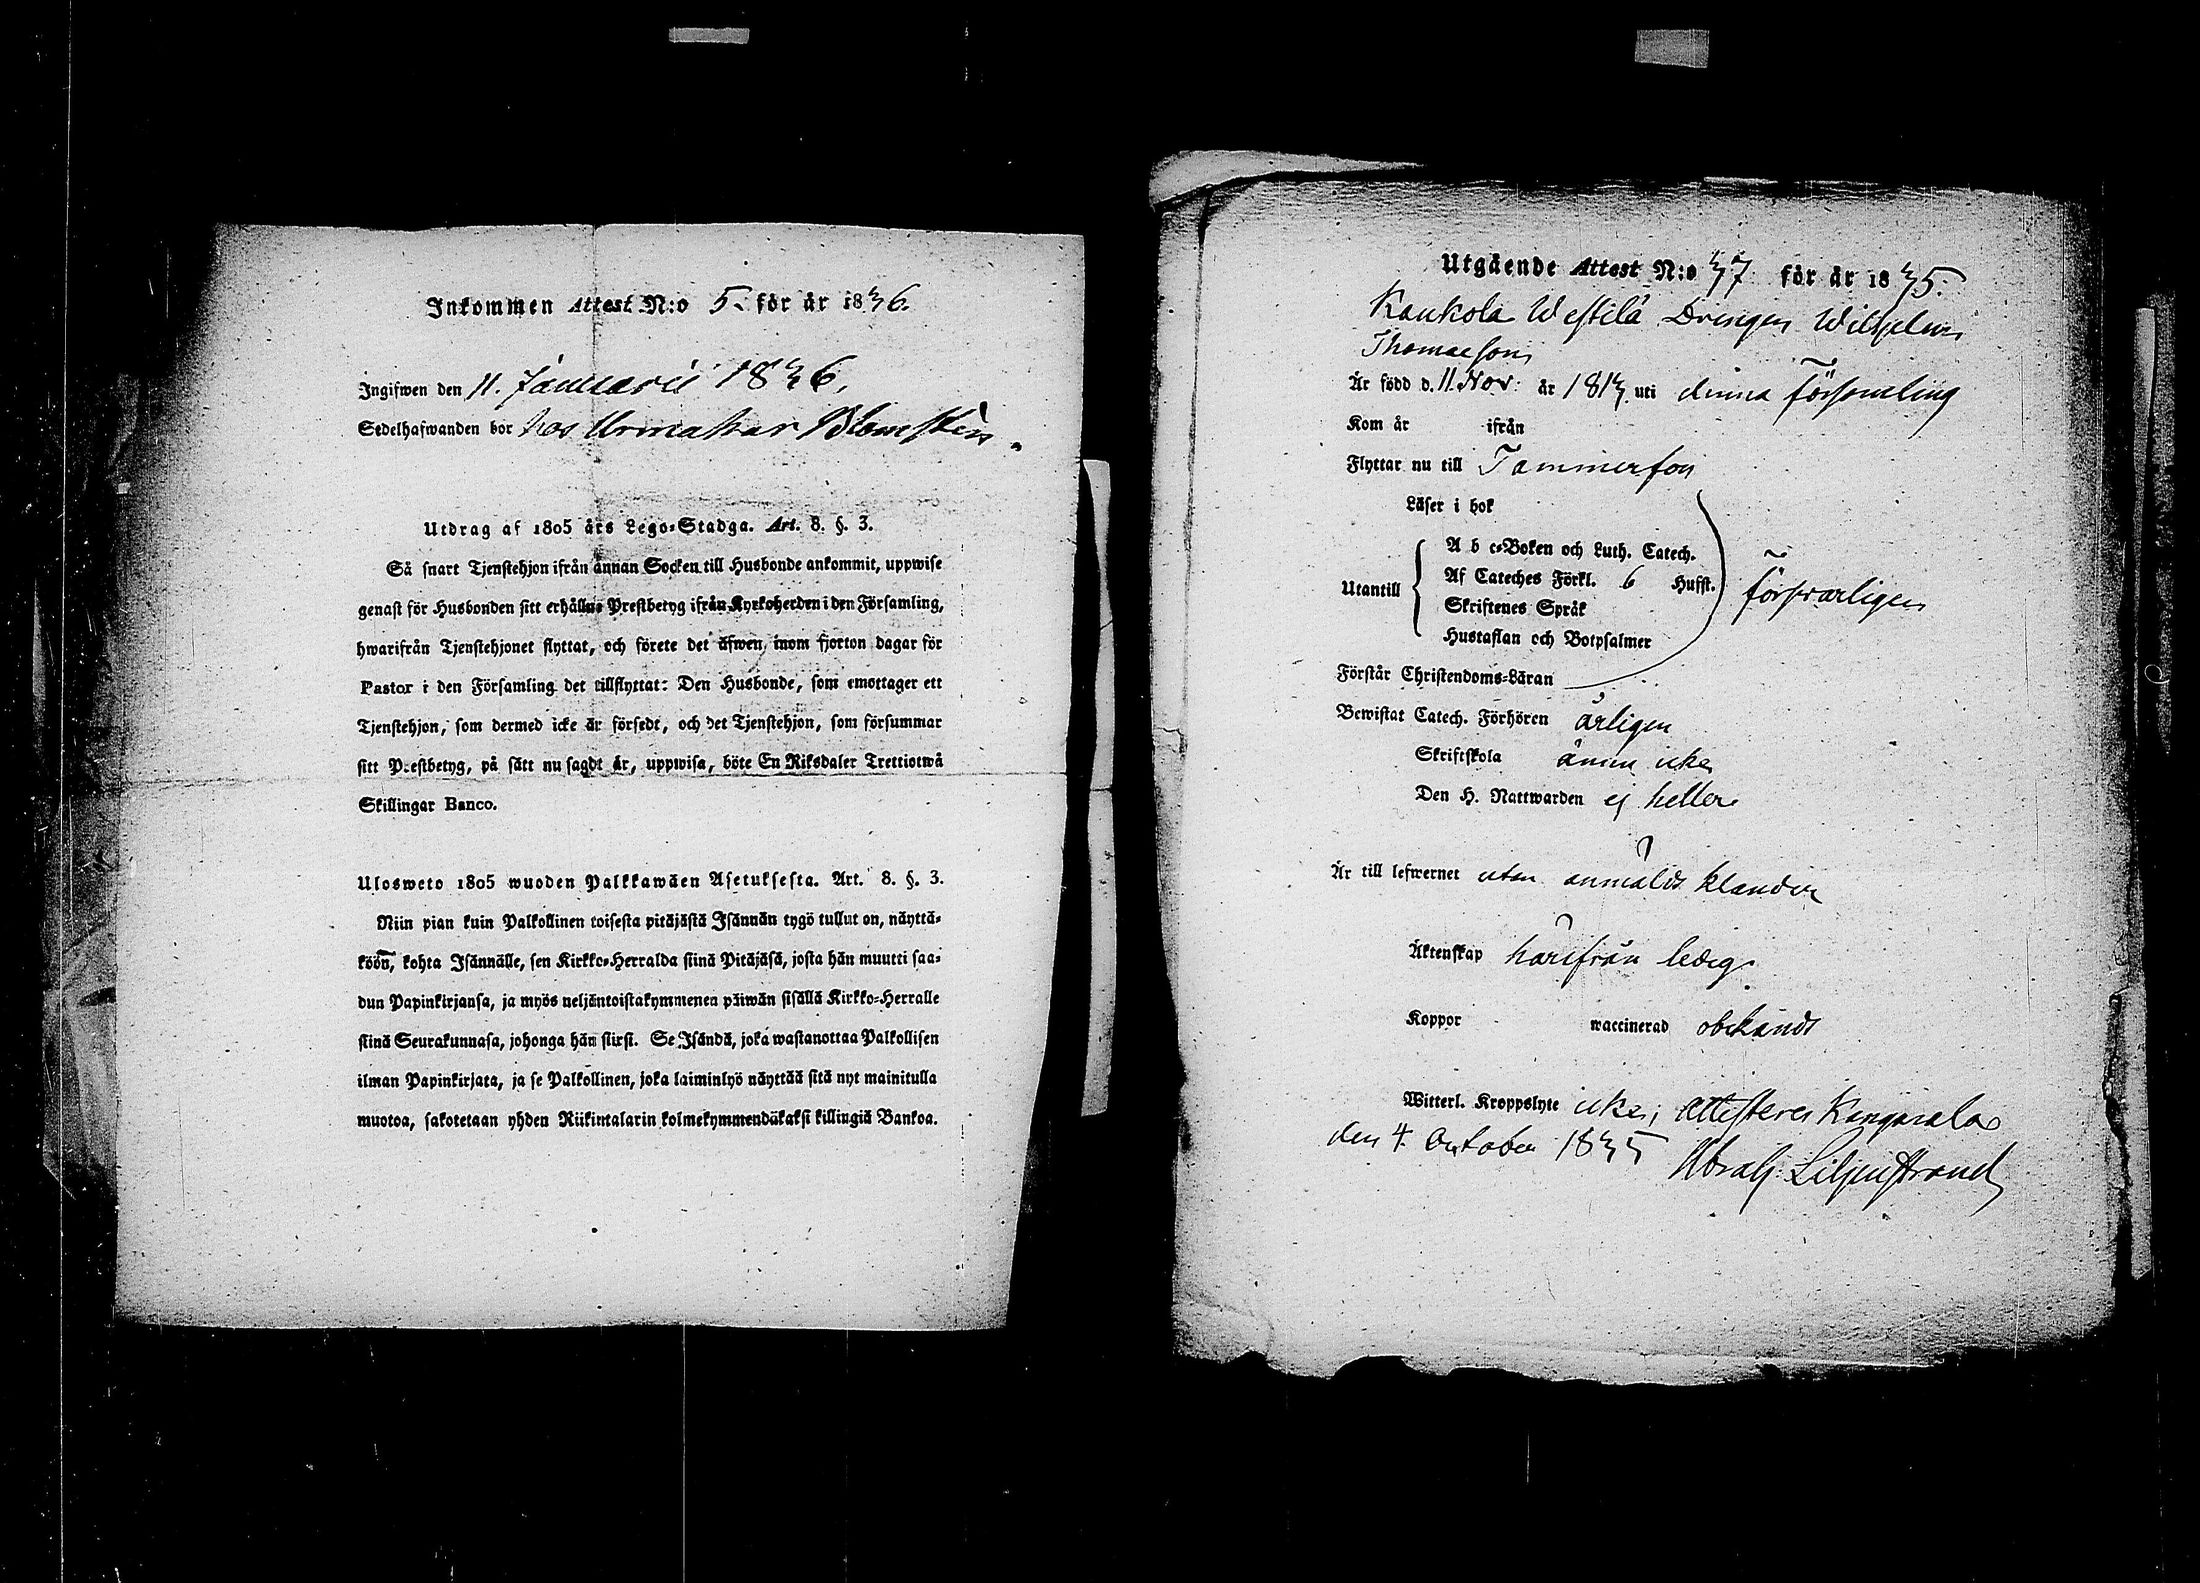 Inkommen Attest N:o 5. för år 1836.
Ingifwen den 11. Januarii 1836.
Sedelhafwanden bor hos Urmakar Blomsten.
Utdrag af 1805 års Lego-Stadga. Art. 8. §. 3.
Så snart Tjenstehjon ifrån annan Socken till Husbonde ankommit, uppwise
genast för Husbonden sitt erhållne Prestbetyg ifrån Kyrkoherden i den Församling,
hwarifrån Tjenstehjonet flyttat, och förete det äfwen inom fjorton dagar för
Pastor i den Församling det tillflyttat: Den Husbonde, som emottager ett
Tjenstehjon, som dermed icke är försedt, och det Tjenstehjon, som försummar
sitt Prestbetyg, på sätt nu sagdt är, uppwisa, böte En Riksdaler Trettiotwå
Skillingar Banco.
Ulosweto 1805 wuoden Palkkawäen Asetuksesta. Art. 8. §. 3.
Niin pian kuin Palkollinen toisesta pitäjästä Isännän tygö tullut on, näyttä-
köön, kohta Isännälle, sen Kirkko-Herralda siinä Pitäjäsä, josta hän muutti saa-
dun Papinkirjansa, ja myös neljäntoistakymmenen päiwän sisällä Kirkko-Herralle
siinä Seurakunnasa, johonga hän siirsi. Se Isändä, joka wastanottaa Palkollisen
ilman Papinkirjata, ja se Palkollinen, joka laiminlyö näyttää sitä nyt mainitulla
muotoa, sakotetaan yhden Riikintalarin kolmekymmendäkaksi killingiä Bankoa.
Utgående Attest N:o 37 för år 1835.
Kaukola Westilä Drengen Wilhelm
Thomasson
Är född d. 11 Nov: år 1813 uti denna Församling
Kom år ifrån
Flyttar nu till Tammerfors
Läser i bok
A b c-Boken och Luth. Catech.
Utantill Af Cateches Förkl. 6 Hufst. försvarligen
Skriftenes Språk
Hustaflan och Botpsalmer
Förstår Christendoms-Läran
Bewistat Catech. Förhören årligen
Skriftskola ännu icke
Den H. Nattwarden ej heller
Är till lefwernet utan anmäldt klander
Äktenskap härifrån ledig
Koppor waccinerad obekandt
Witterl. Kroppslyte icke; attesterer Kangasala
den 4. October 1835 Abrah. Liljenstrand